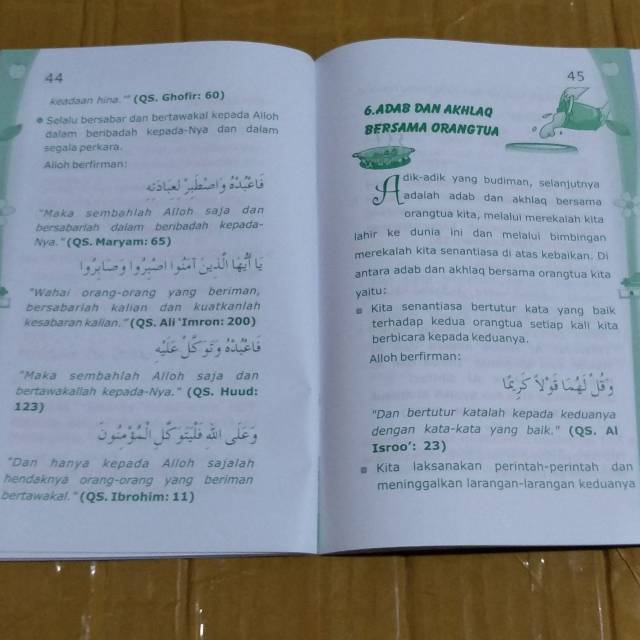 44
keadaan hina."" (QS. Ghofir: 60)
Selalu bersabar dan bertawakal kepada Alloh
dalam beribadah kepada-Nya dan dalam
segala perkara.
Alloh berfirman:
فَاعْبُدْهُ وَاصْطَبِرْ لِعِبَادَتِهِ
"Maka sembahlah Alloh saja dan
bersabarlah dalam beribadah kepada-
Nya." (QS. Maryam: 65)
يَا أَيُّهَا الَّذِينَ آمَنُوا اصْبِرُوا وَصَابِرُوا
"Wahai orang-orang yang beriman,
bersabarlah kalian dan kuatkanlah
kesabaran kalian." (QS. Ali 'Imron: 200)
فَاعْبُدْهُ وَتَوَكَّلْ عَلَيْهِ
"Maka sembahlah Alloh saja dan
bertawakallah kepada-Nya." (QS. Huud:
123)
وَعَلَى اللهِ فَلْيَتَوَكَّلِ الْمُؤْمِنُونَ
"Dan hanya kepada Alloh sajalah
hendaknya orang-orang yang beriman
bertawakal." (QS. Ibrohim: 11)
45
6.ADAB DAN AKHLAQ
BERSAMA ORANGTUA
Adik-adik yang budiman, selanjutnya
adalah adab dan akhlaq bersama
orangtua kita, melalui merekalah kita
lahir ke dunia ini dan melalui bimbingan
merekalah kita senantiasa di atas kebaikan. Di
antara adab dan akhlaq bersama orangtua kita
yaitu:
Kita senantiasa bertutur kata yang baik
terhadap kedua orangtua setiap kali kita
berbicara kepada keduanya.
Alloh berfirman:
وَقُلْ لَهُمَا قَوْلًا كَرِيمًا
"Dan bertutur katalah kepada keduanya
dengan kata-kata yang baik." (QS. Al
Isroo': 23)
Kita laksanakan perintah-perintah dan
meninggalkan larangan-larangan keduanya